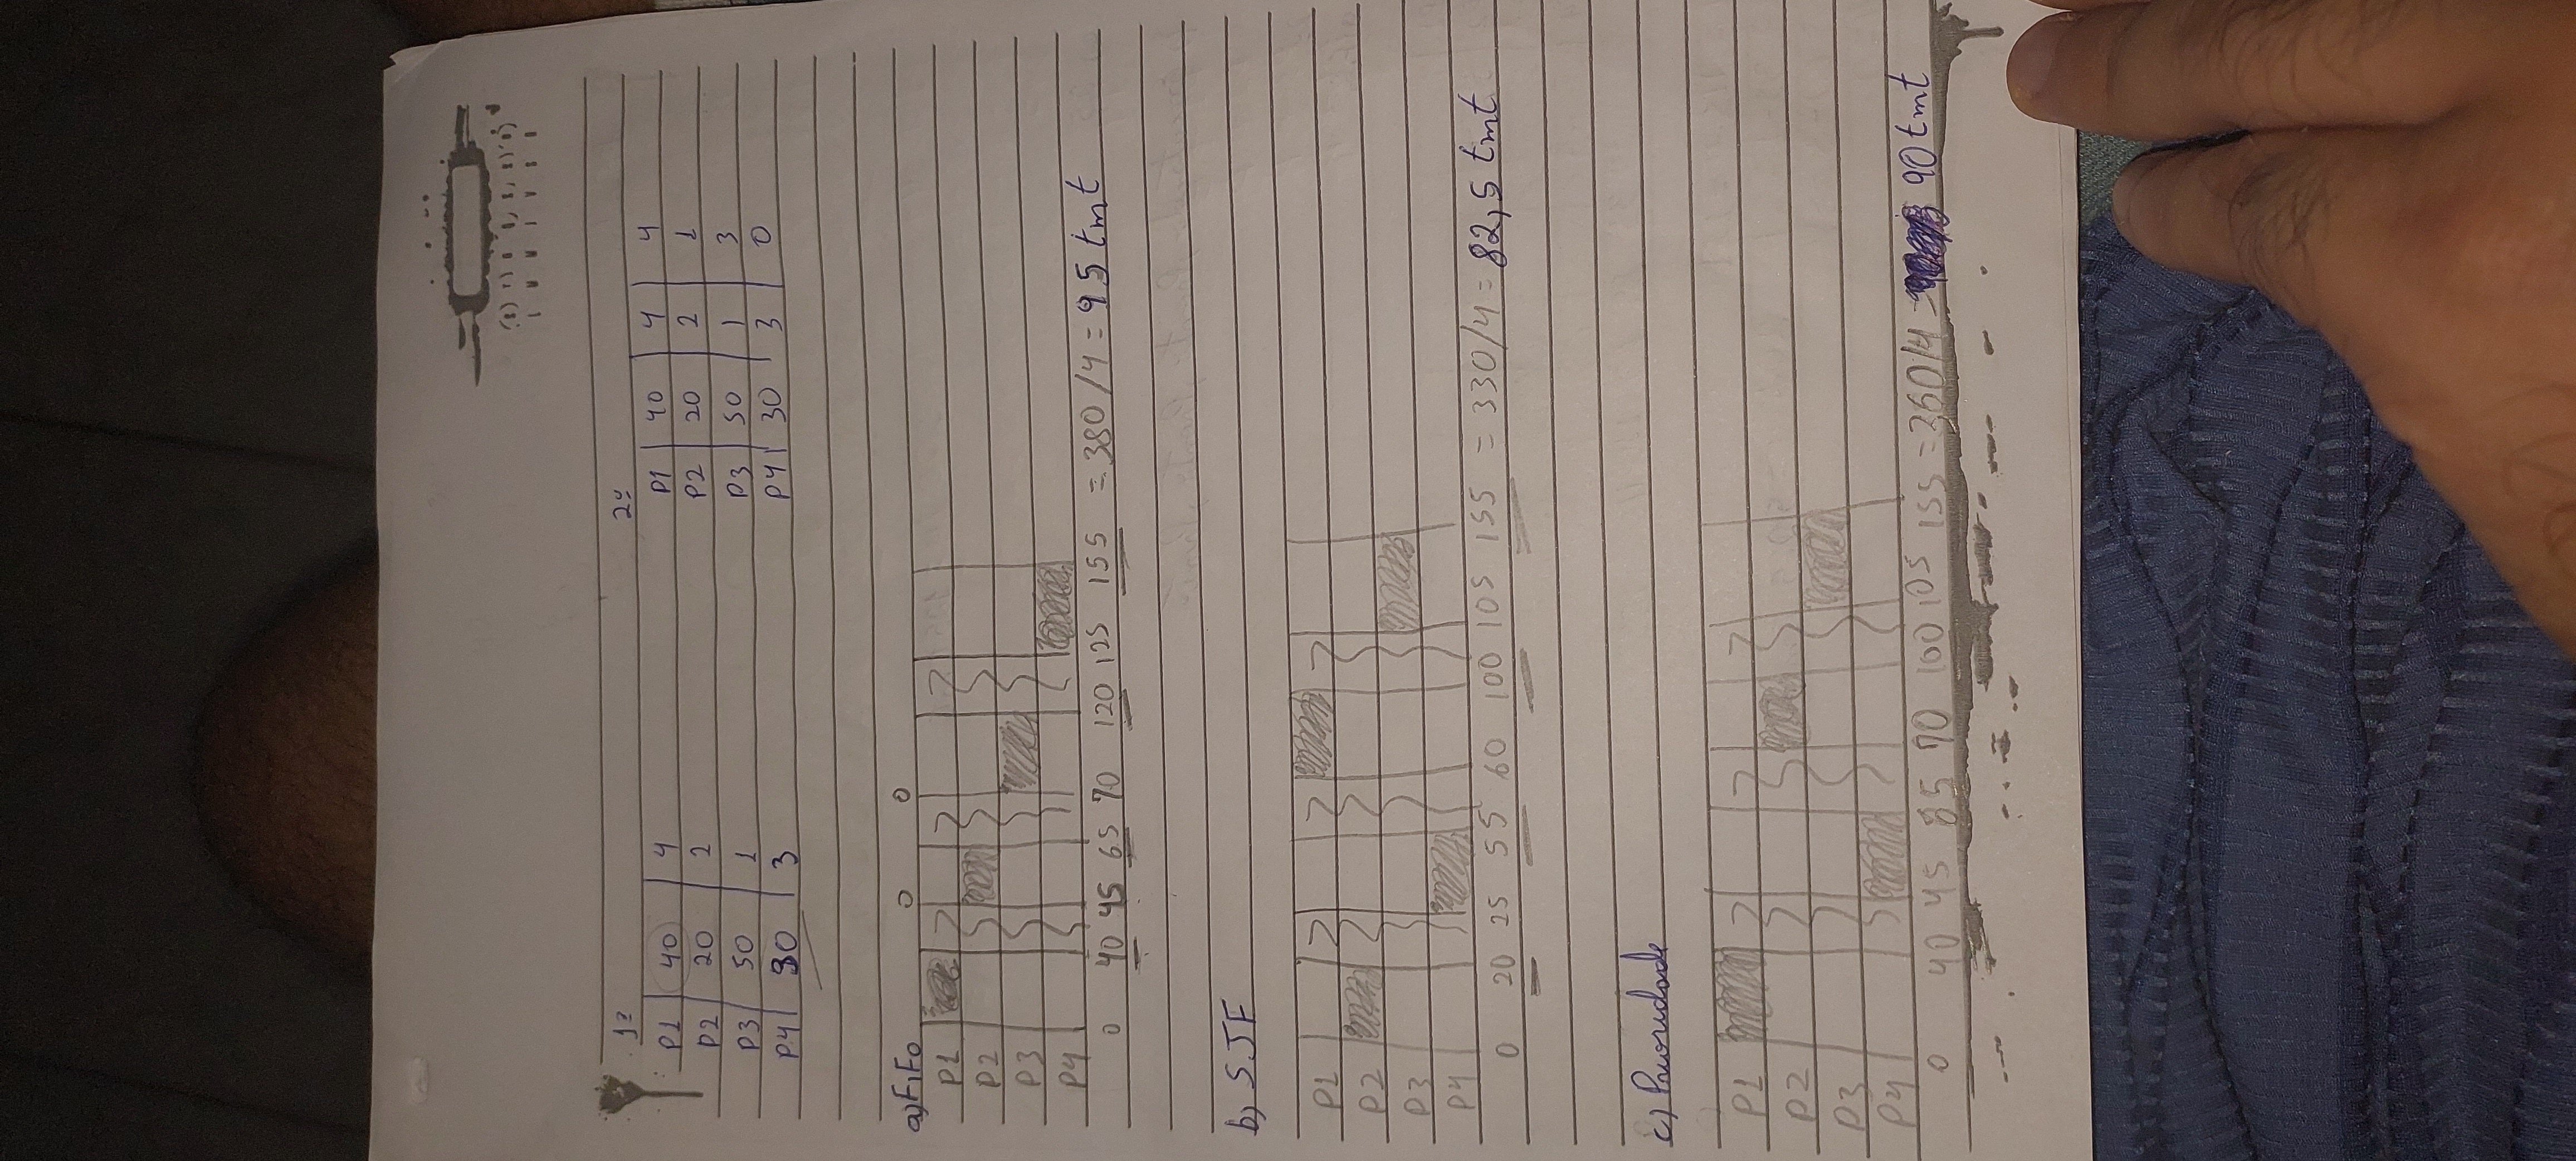 1ª 2ª
P1 40 4 P1 40 4 4
P2 20 2 P2 20 2 1
P3 50 1 P3 50 1 3
P4 30 3 P4 30 3 0
a) FiFo 0 0
P1
P2
P3
P4
0 40 45 65 70 120 125 155 = 380/4 = 95 tmt
b) SJF
P1
P2
P3
P4
0 20 25 55 60 100 105 155 = 330/4 = 82,5 tmt
c) Prioridade
P1
P2
P3
P4
0 40 45 85 70 100 105 155 = 360/4 = 90 tmt